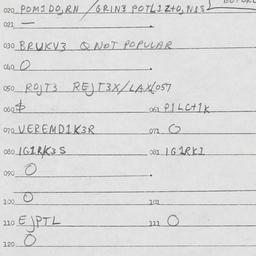 020 POMIDORN / GRIN3 POTLIZ+O, N13
021 —
030 BRUKV3 Q NOT POPULAR
040 O
050 ROJT3 REJT3X/LAX(057
060 $ 061 PILC+1K
070 VEREMD1K3R 071 O
080 IG1RK3S 081 IG1RKI
090 O
100 O 101
110 EJPTL 111 O
120 O